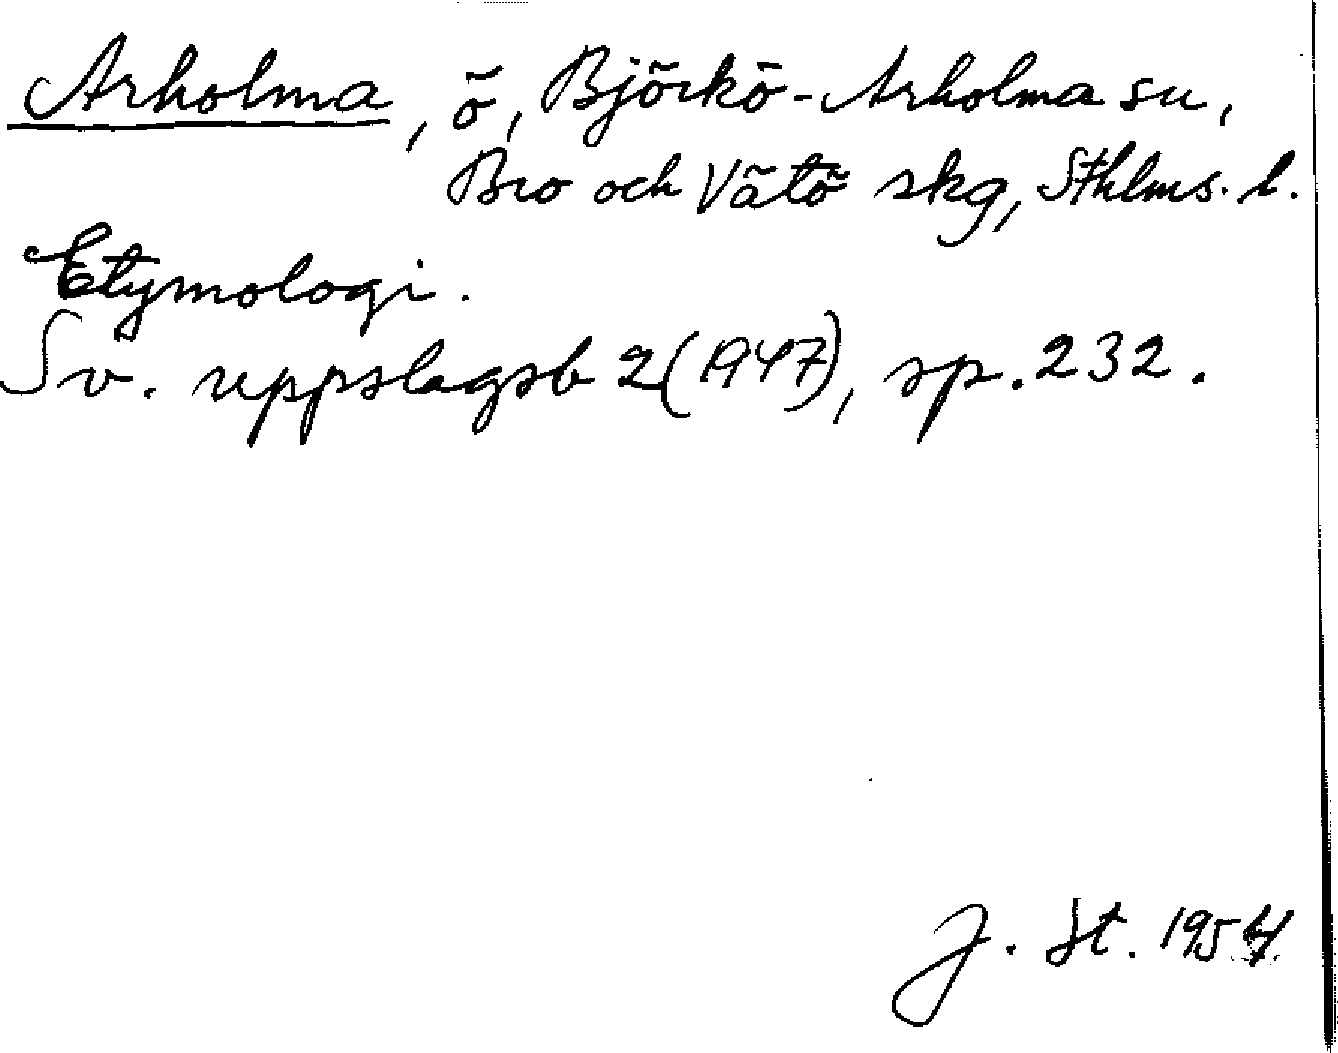 Arholma, ö, Björkö-Arholma sn,
Bro och Vätö skg, Sthlms. l.
Etymologi.
Sv. uppslagsb 2(1947), sp. 232.
J. St. 1954.